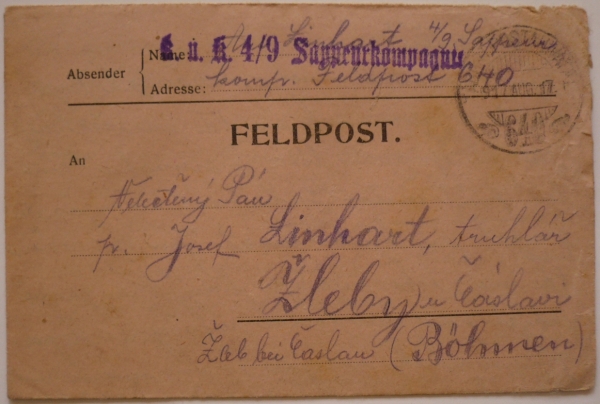 Absender
Name:
K. u. K. 4/9 Sappeurkompagnie
Linhart 4/9 Sappeur
Adresse: komp. Feldpost 640
AUG. 17
640
FELDPOST.
An
Velectěný Pán
p. Josef Linhart, truhlář
Žleby u Čáslavi
Žleb bei Časlau (Böhmen)